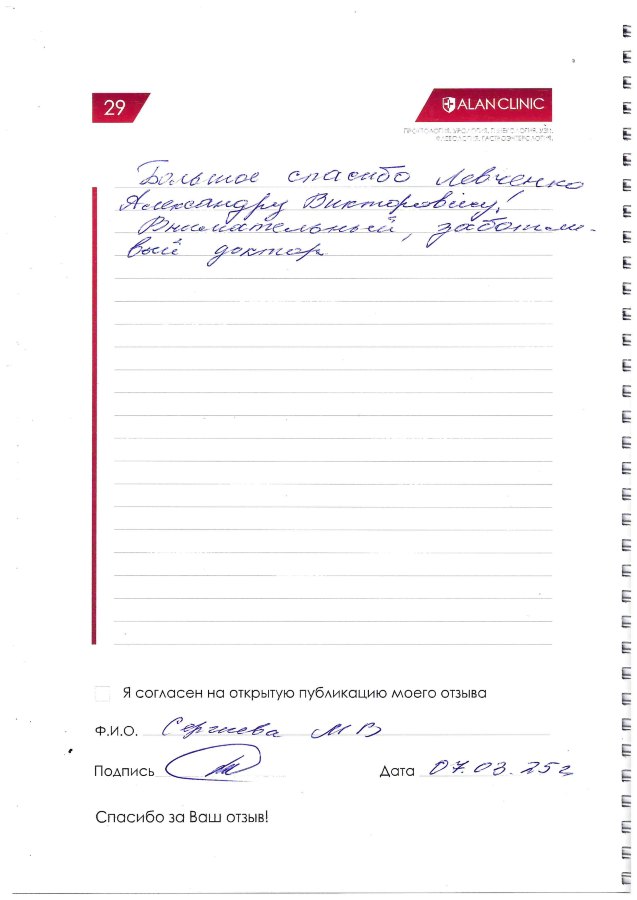 29
ALAN CLINIC
ПРОКТОЛОГИЯ, УРОЛОГИЯ, ГИНЕКОЛОГИЯ, УЗИ,
ФЛЕБОЛОГИЯ, ГАСТРОЭНТЕРОЛОГИЯ,
Большое спасибо Левченко
Александру Викторовичу!
Внимательный, заботли-
вый доктор
Я согласен на открытую публикацию моего отзыва
Ф.И.О. Сергиева М В
Подпись Дата 07.03.25г
Спасибо за Ваш отзыв!